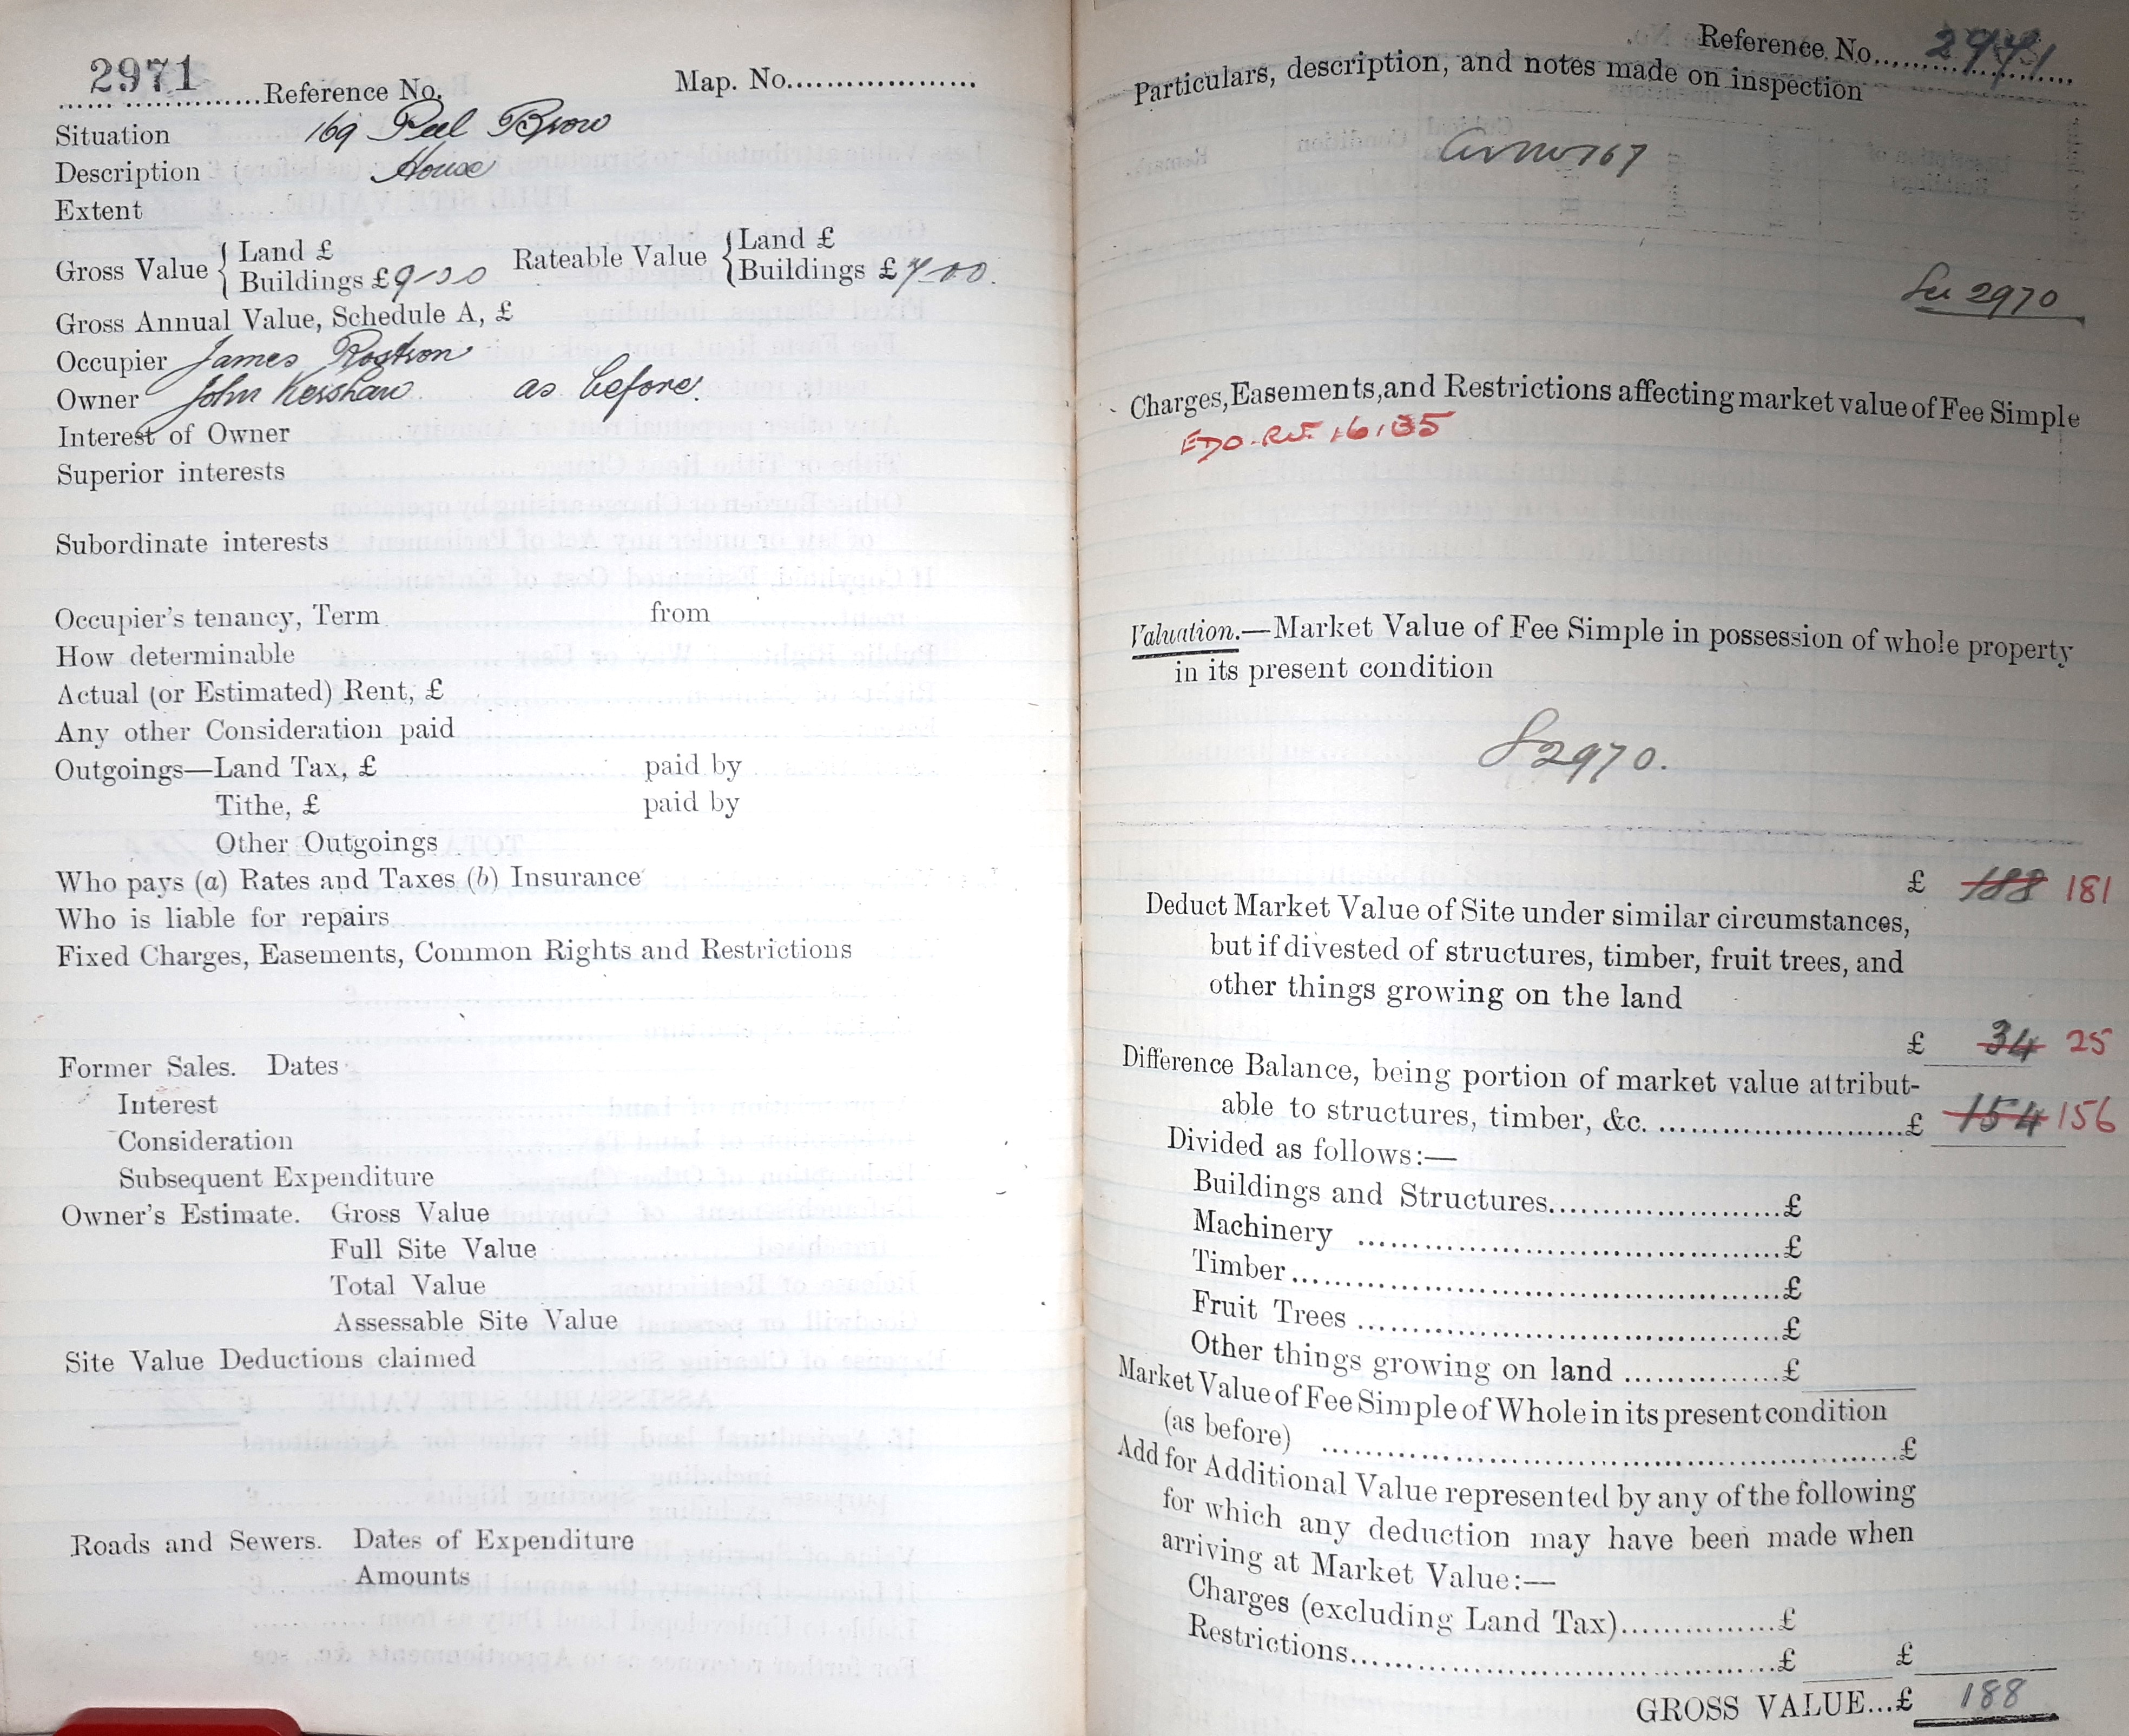 2971 Reference No. Map. No.
Situation 169 Peel Brow
Description House
Extent
Gross Value { Land £ Rateable Value { Land £
Buildings £ 9-00 Buildings £ 7-00.
Gross Annual Value, Schedule A, £
Occupier James Rostron
Owner John Kershaw as before.
Interest of Owner
Superior interests
Subordinate interests
Occupier's tenancy, Term from
How determinable
Actual (or Estimated) Rent, £
Any other Consideration paid
Outgoings—Land Tax, £ paid by
Tithe, £ paid by
Other Outgoings
Who pays (a) Rates and Taxes (b) Insurance
Who is liable for repairs
Fixed Charges, Easements, Common Rights and Restrictions
Former Sales. Dates
Interest
Consideration
Subsequent Expenditure
Owner's Estimate. Gross Value
Full Site Value
Total Value
Assessable Site Value
Site Value Deductions claimed
Roads and Sewers. Dates of Expenditure
Amounts
Reference No. 2971
Particulars, description, and notes made on inspection
167
See 2970
Charges, Easements, and Restrictions affecting market value of Fee Simple
Valuation.—Market Value of Fee Simple in possession of whole property
in its present condition
2970.
£ 188 181
Deduct Market Value of Site under similar circumstances,
but if divested of structures, timber, fruit trees, and
other things growing on the land
£ 34 25
Difference Balance, being portion of market value attribut-
able to structures, timber, &c. £ 154 156
Divided as follows:—
Buildings and Structures £
Machinery £
Timber £
Fruit Trees £
Other things growing on land £
Market Value of Fee Simple of Whole in its present condition
(as before) £
Add for Additional Value represented by any of the following
for which any deduction may have been made when
arriving at Market Value:—
Charges (excluding Land Tax) £
Restrictions £ £
GROSS VALUE...£ 188